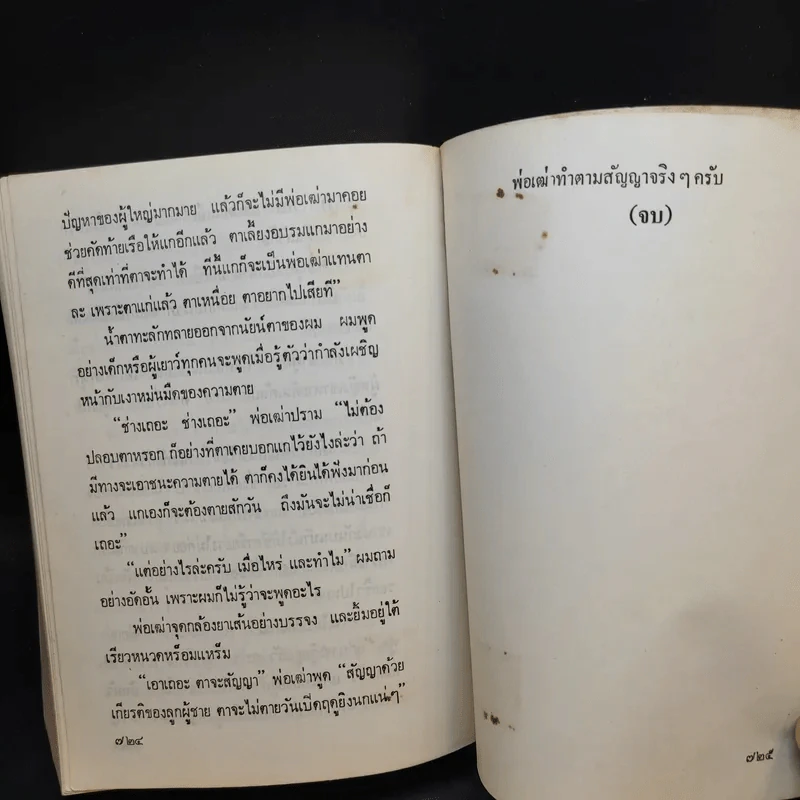 ปัญหาของผู้ใหญ่มากมาย แล้วก็จะไม่มีพ่อเฒ่ามาคอย
ช่วยคัดท้ายเรือให้แกอีกแล้ว ตาเลี้ยงอบรมแกมาอย่าง
ดีที่สุดเท่าที่ตาจะทำได้ ทีนี้แกก็จะเป็นพ่อเฒ่าแทนตา
ละ เพราะตาแก่แล้ว ตาเหนื่อย ตาอยากไปเสียที”
น้ำตาทะลักทลายออกจากนัยน์ตาของผม ผมพูด
อย่างเด็กหรือผู้เยาว์ทุกคนจะพูดเมื่อรู้ตัวว่ากำลังเผชิญ
หน้ากับเงาหม่นมืดของความตาย
“ช่างเถอะ ช่างเถอะ” พ่อเฒ่าปราม “ไม่ต้อง
ปลอบตาหรอก ก็อย่างที่ตาเคยบอกแกไว้ยังไงล่ะว่า ถ้า
มีทางจะเอาชนะความตายได้ ตาก็คงได้ยินได้ฟังมาก่อน
แล้ว แกเองก็จะต้องตายสักวัน ถึงมันจะไม่น่าเชื่อก็
เถอะ”
“แต่อย่างไรล่ะครับ เมื่อไหร่ และทำไม” ผมถาม
อย่างอัดอั้น เพราะผมก็ไม่รู้ว่าจะพูดอะไร
พ่อเฒ่าจุดกล้องยาเส้นอย่างบรรจง และยิ้มอยู่ใต้
เรียวหนวดหร็อมแหร็ม
“เอาเถอะ ตาจะสัญญา” พ่อเฒ่าพูด “สัญญาด้วย
เกียรติของลูกผู้ชาย ตาจะไม่ตายวันเปิดฤดูยิงนกแน่ๆ”
๗๒๔
พ่อเฒ่าทำตามสัญญาจริงๆ ครับ
(จบ)
๗๒๕